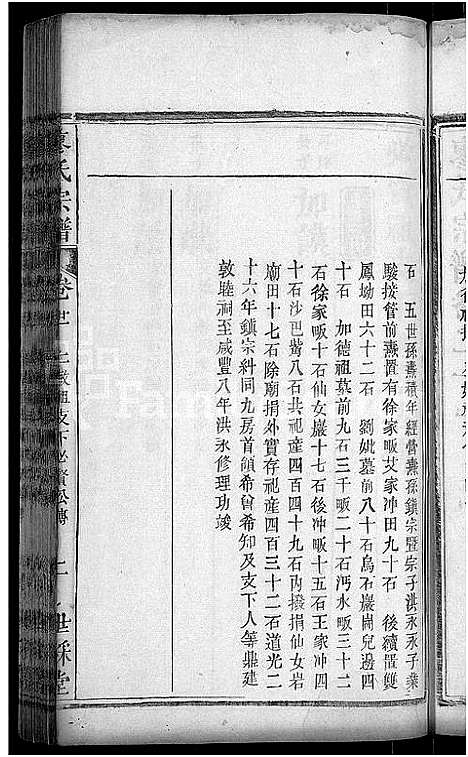 石　五世孫燾積年經營燾孫鎮宗暨宗子洪永永子業
駿接管前燾置有徐家畈艾家冲田九十石　後續置雙
鳳坳田六十二石　劉妣墓前八十石烏石巖崗兒邊四
十石　加德祖墓前九石三千畈二十石沔水畈三十二
石徐家畈十石仙女巖十七石後冲畈十五石王家冲四
十石沙巴觜八石共祀產四百四十九石內撥捐仙女岩
廟田十七石除廟捐外實存祀產四百三十二石道光二
十六年鎮宗糾同九房首領希曾希知及支下人等鼎建
敦睦祠至咸豐八年洪永修理功竣
氏宗譜
卷
祖支下
世綵堂